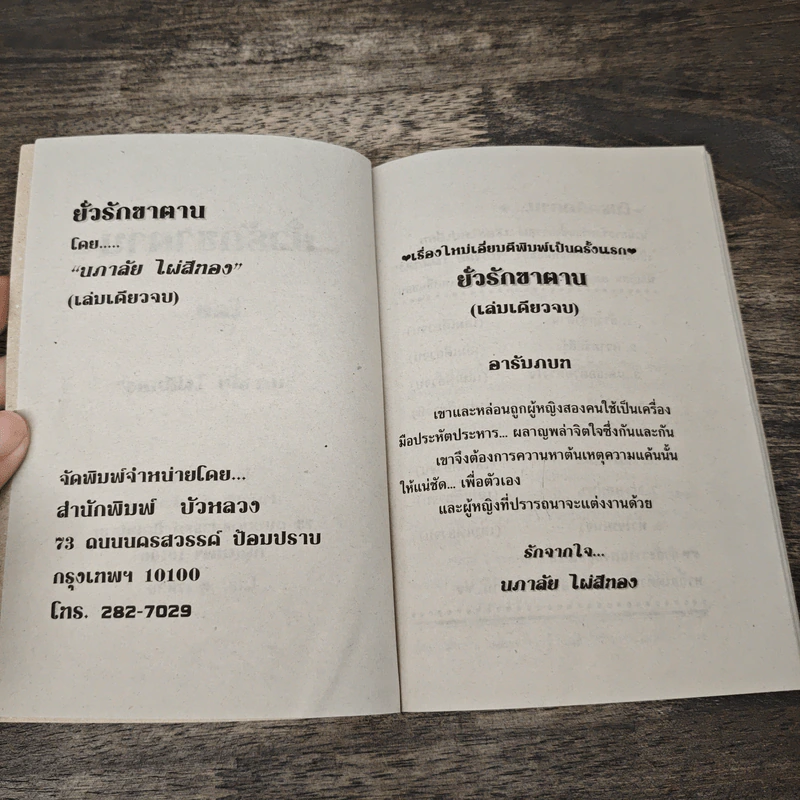 ยั่วรักซาตาน
โดย.....
“นภาลัย ไผ่สีทอง”
(เล่มเดียวจบ)
จัดพิมพ์จำหน่ายโดย...
สำนักพิมพ์ บัวหลวง
73 ถนนนครสวรรค์ ป้อมปราบ
กรุงเทพฯ 10100
โทร. 282-7029
❤เรื่องใหม่เอี่ยมตีพิมพ์เป็นครั้งแรก❤
ยั่วรักซาตาน
(เล่มเดียวจบ)
อารัมภบท
เขาและหล่อนถูกผู้หญิงสองคนใช้เป็นเครื่อง
มือประหัตประหาร... ผลาญพล่าจิตใจซึ่งกันและกัน
เขาจึงต้องการควานหาต้นเหตุความแค้นนั้น
ให้แน่ชัด... เพื่อตัวเอง
และผู้หญิงที่ปรารถนาจะแต่งงานด้วย
รักจากใจ...
นภาลัย ไผ่สีทอง